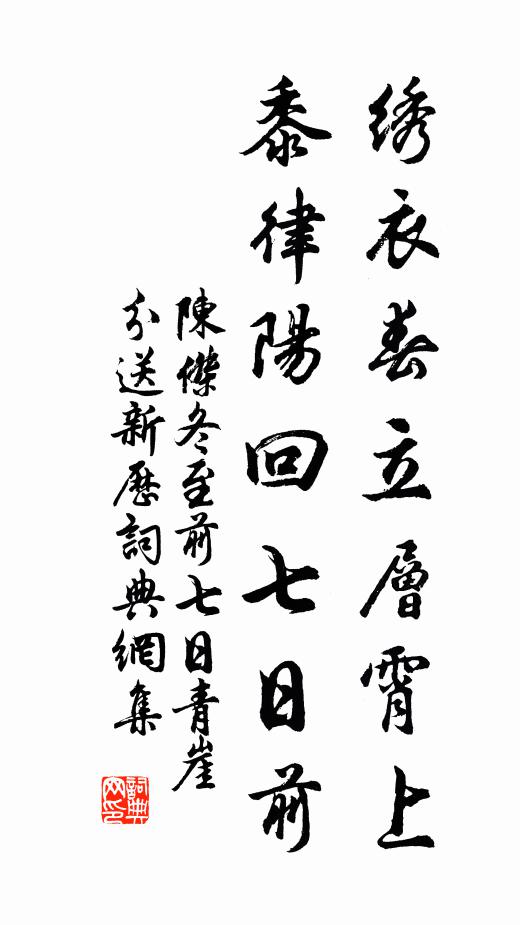 绣衣春立層霄上
黍律陽回七日前
陳傑冬至前七日青崖
分送新歷詞典網集
詞典
网印